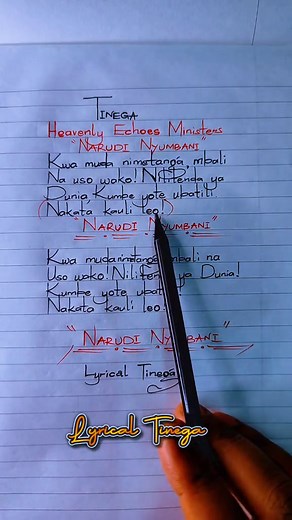 Tinega
Heavenly Echoes Ministers
"Narudi Nyumbani"
Kwa muda nimetanga mbali
Na uso wako! Nilitenda ya
Dunia, Kumbe yote ubatili
(Nakata kauli leo!)
"Narudi Nyumbani"
Kwa muda mbali na
Uso wako! ya Dunia!
Kumbe yote
Nakata kauli leo!
"Narudi Nyumbani"
Lyrical Tinega
Lyrical Tinega